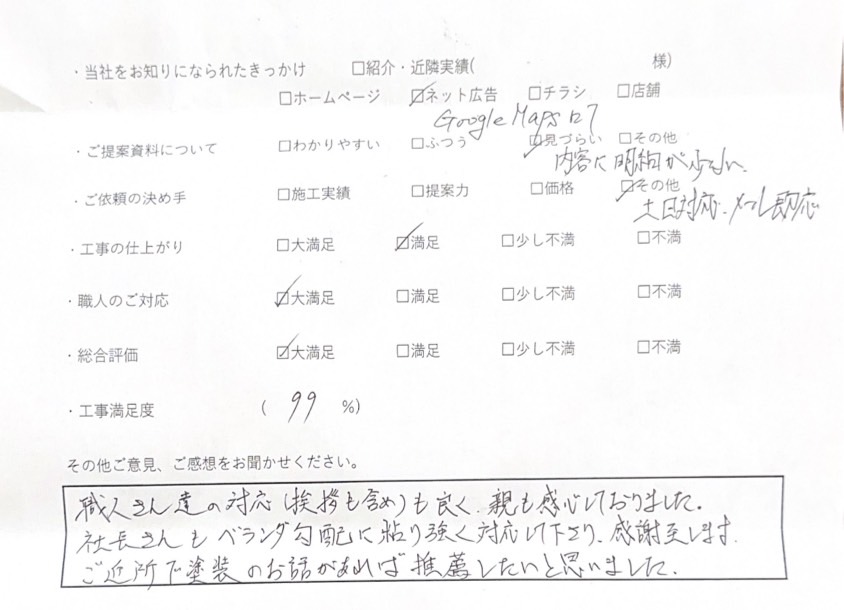 ・当社をお知りになられたきっかけ □紹介・近隣実績( 様)
□ホームページ ☑ネット広告 □チラシ □店舗
Google Maps ロコ
・ご提案資料について □わかりやすい □ふつう ☑見づらい □その他
内容に明細が少ない、
・ご依頼の決め手 □施工実績 □提案力 □価格 ☑その他
土日対応、メール即応
・工事の仕上がり □大満足 ☑満足 □少し不満 □不満
・職人のご対応 ☑大満足 □満足 □少し不満 □不満
・総合評価 ☑大満足 □満足 □少し不満 □不満
・工事満足度 ( 99 %)
その他ご意見、ご感想をお聞かせください。
職人さん達の対応(挨拶も含め)も良く、親も感心しておりました。
社長さんもベランダ勾配に粘り強く対応して下さり、感謝至します。
ご近所で塗装のお話があれば推薦したいと思いました。